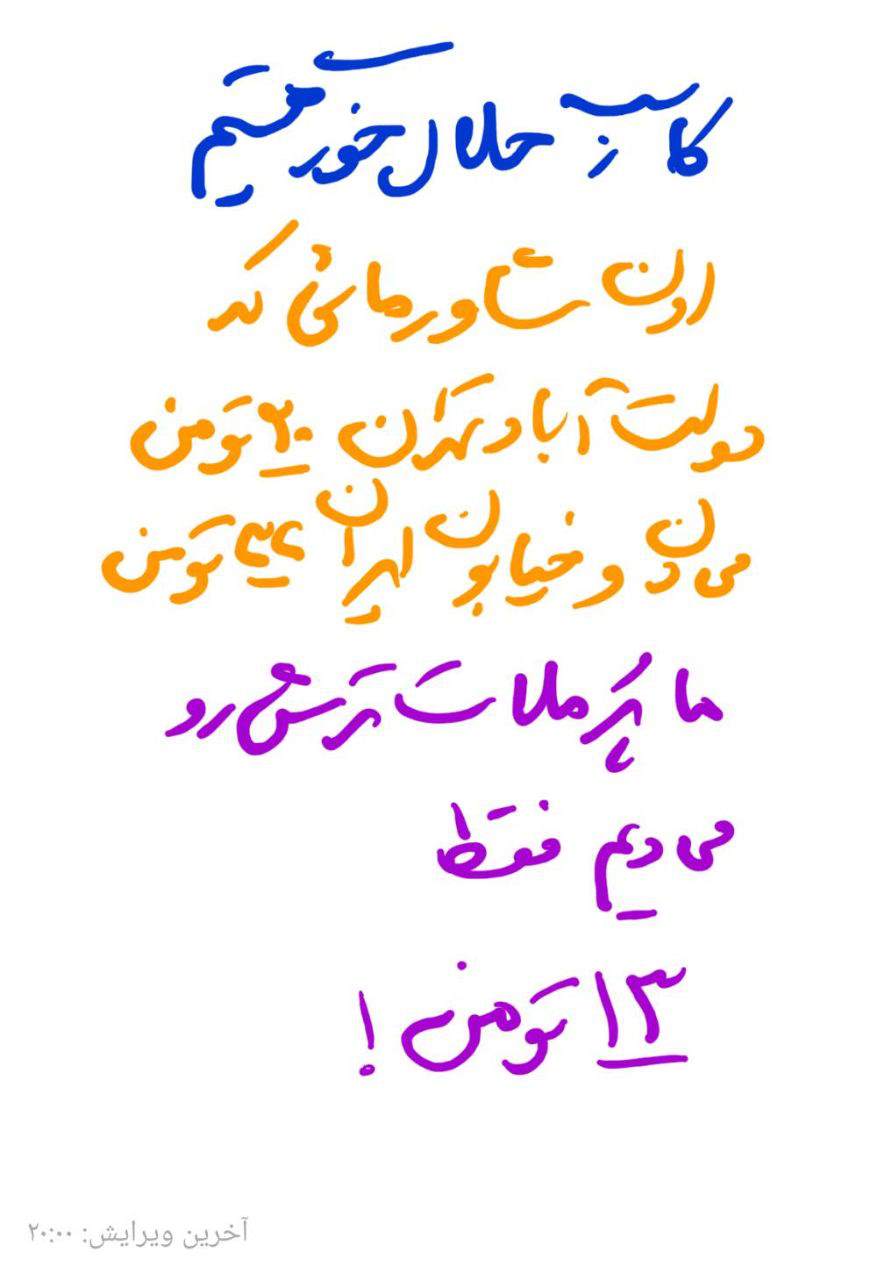 کاسبِ حلال خور هستیم
اون شاورمائی که
دولت آباد تهران ۲۰ تومن
می دن و خیابون ایران ۲۴ تومن
ما پُر ملات ترش رو
می دیم فقط
۱۳ تومن !
آخرین ویرایش: ۲۰:۰۰